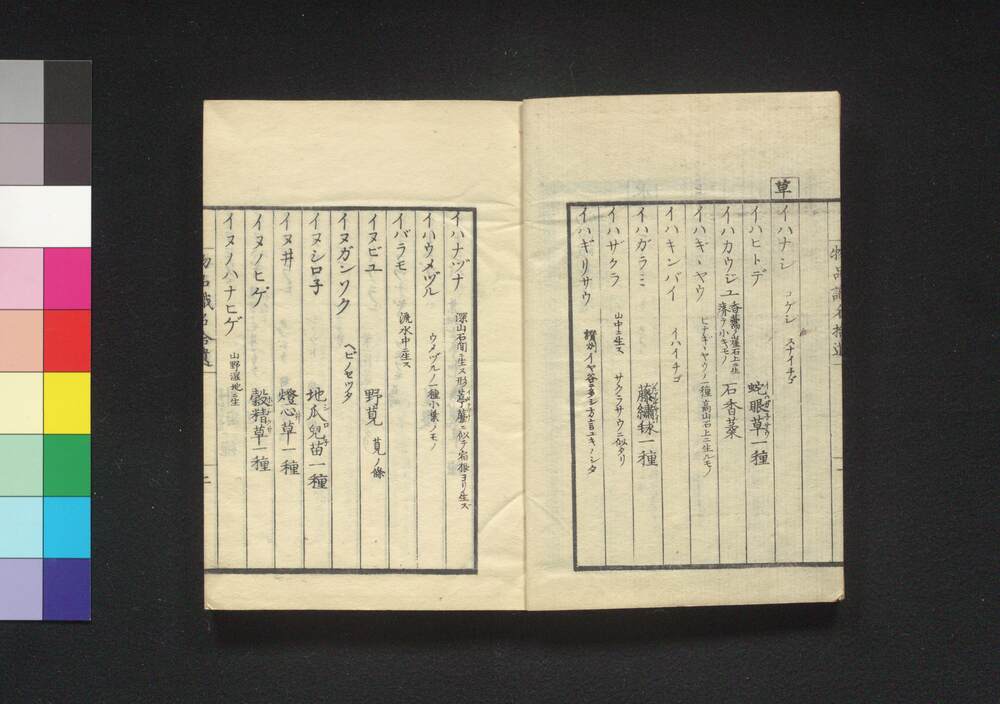 草
イハナシ コケシ スナイチゴ
イハヒトデ 蛇眼草一種
イハカウジユ 香薷ノ 崖石上ニ生 小キモノ 石香葇
イハギヽヤウ ヒナギヽヤウノ一種高山石上ニ生ルモノ
イハキンバイ イハイチゴ
イハガラミ 藤繍毬一種
イハザクラ 山中ニ生ス サクラサウニ似タリ
イハギリサウ イヤ谷 方言ユキノシタ
イハナヅナ 深山石間ニ生ス形葶藶ニ似テ宿根ヨリ生ス
イハウメヅル ウメヅルノ一種小葉ノモノ
イバラモ 流水中ニ生ス
イヌビユ 野莧 莧ノ條
イヌガンソク ヘビノセツタ
イヌシロ子 地瓜兒苗一種
イヌ井 燈心草一種
イヌノヒゲ 穀精草一種
イヌノハナヒゲ 山野濕地ニ生
物品識名拾遺